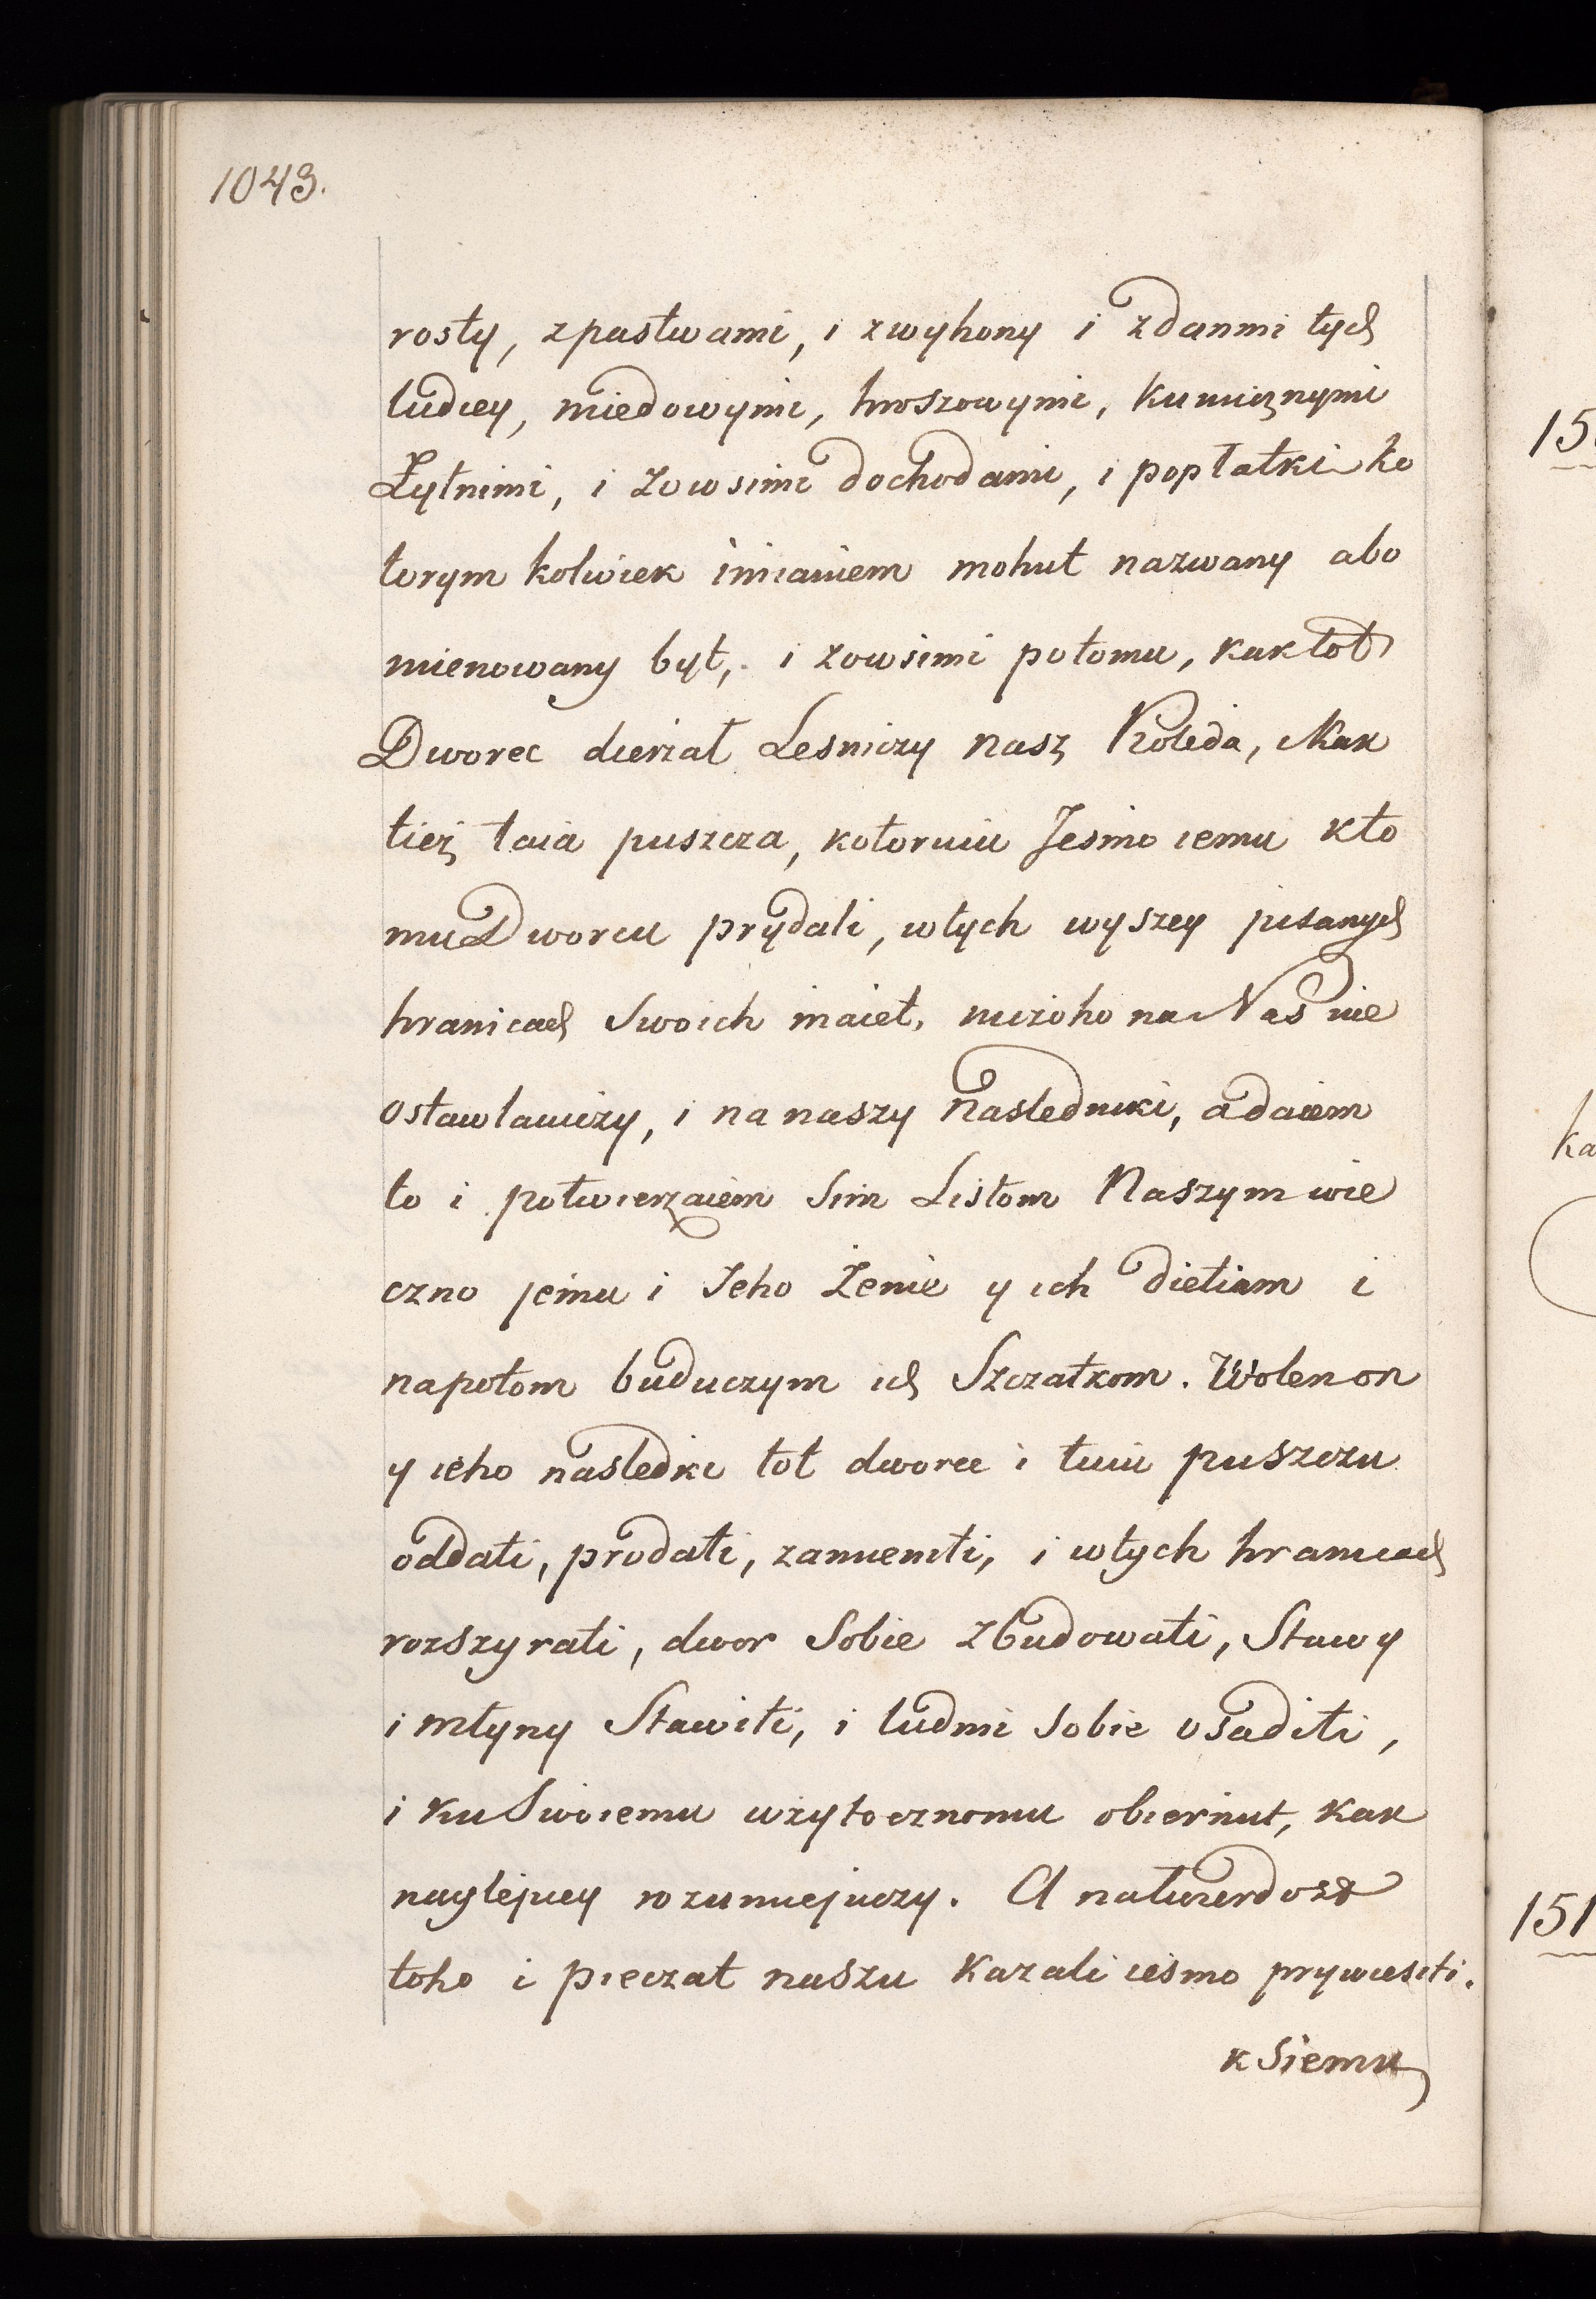 1043.
rosty, z pastwami, i z wyhony i z danmi tych
ludiey, miedowymi, hroszowymi, kunicznymi
Żytnimi, i zo wsimi dochodami, i poplatki ko
torym kolwiek imianiem mohut nazwany abo
mienowany byt, i zo wsimi potomu, kak tot
Dworec dierżał Lesniczy nasz Koleda, i kak
tież taia puszcza, kotoruiu Jesmo iemu k to
mu Dworcu prydali, w tych wyszey pisanych
hranicach Swoich maiet, niczoho na Nas nie
ostawlaiuczy, i na naszy nasledniki, a daiem
to i potwierzaiem Sim Listom Naszym wie
czno jemu i Jeho Żenie y ich dietiam i
napotom buduczym ich Szczatkom. Wolen on
y ieho nasledki tot dworec i tuiu puszczu
oddati, prodati, zamieniti, i w tych hranicach
rozszyrati, dwor Sobie zbudowati, Stawy
i młyny Stawiti, i ludmi Sobie osaditi,
i ku Swoiemu użytocznomu obiernut, kak
naylepiey rozumiejuczy. A na twierdost
toho i pieczat naszu kazali iesmo prywiesiti.
k Siemu
15
ka
151